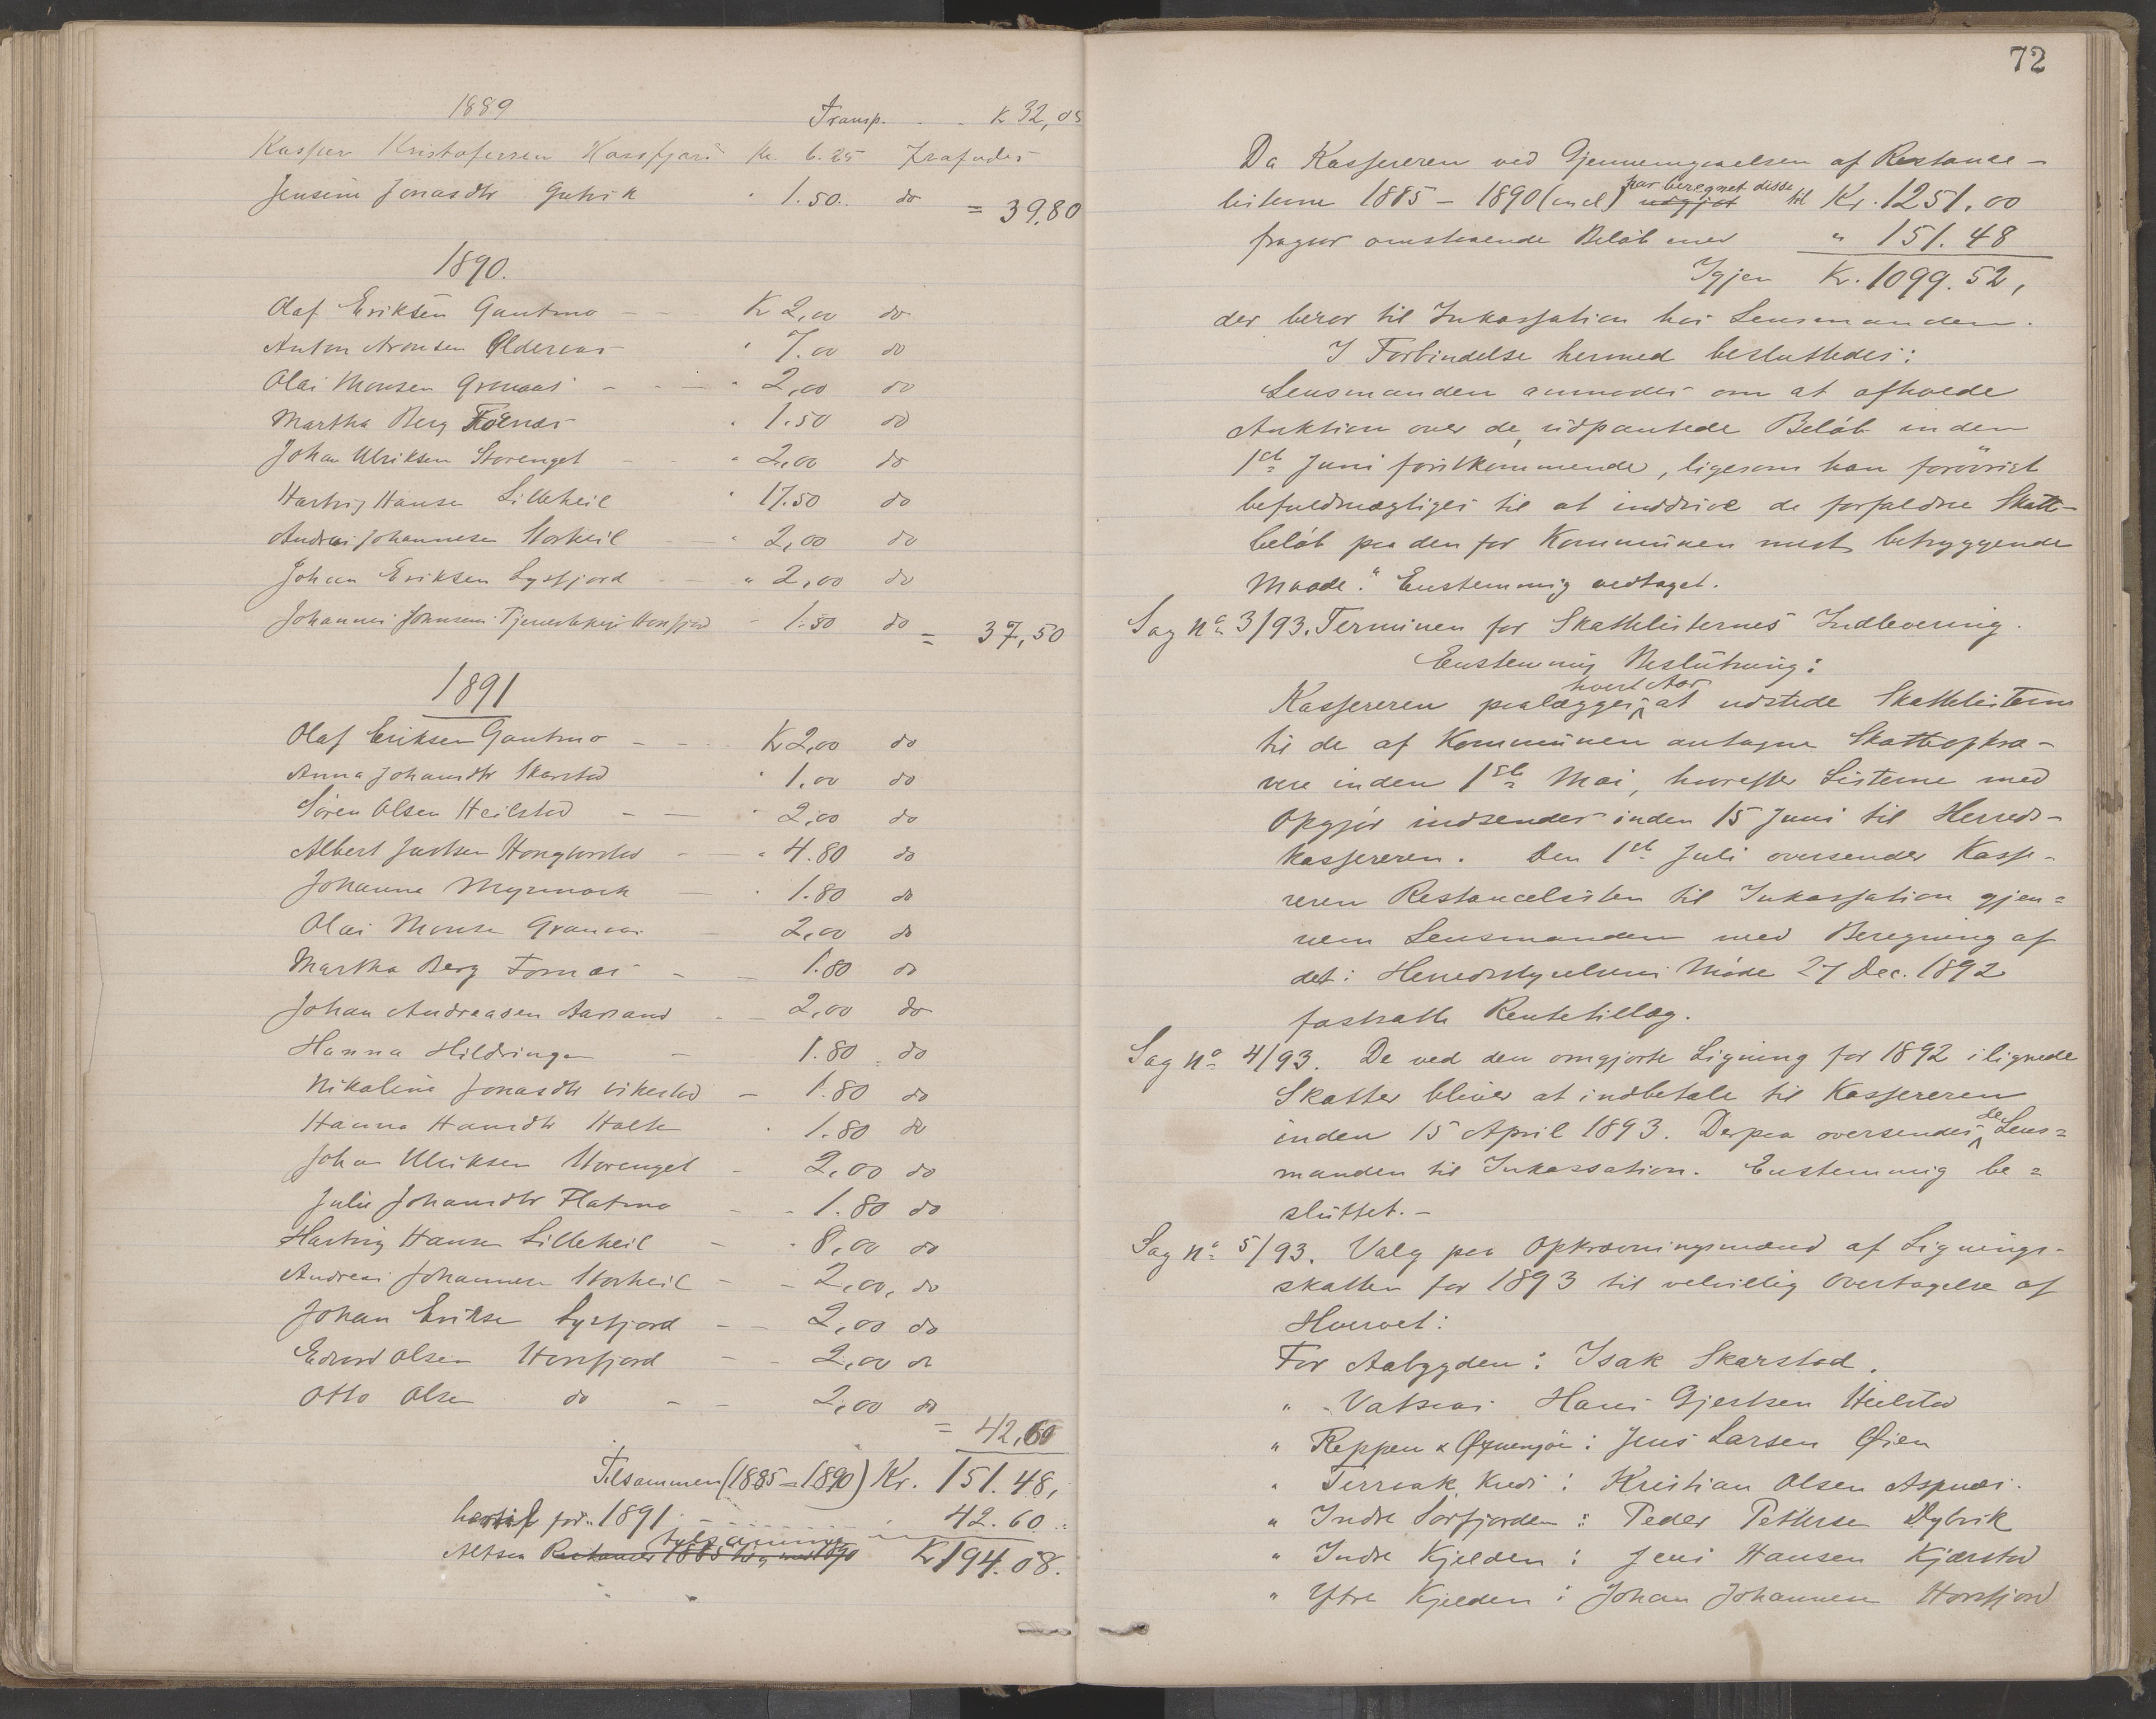 1889 Transp. . . K 32,05
Kasper Kristofersen Horsfjord Kr. 6.25 Frafaldes
Jensine Jonasdtr Gutvik " 1.50. do = 39,80
1890.
Olaf Eriksen Gautmo K 2,00 do
Anton Aronsen Olderaas " 7.00 do
Olai Monsen Granaas " 2,00 do
Martha Berg Fornæs " 1.50 do
Johan Ulriksen Storenget " 2,00 do
Hartvig Hansen Lilleheil " 17.50 do
Andreas Johannesen Storheil " 2,00 do
Johan Eriksen Sysfjord " 2,00 do
Johannes Johnsens Horsfjord " 1.50 do = 37,50
1891
Olaf Eriksen Gautmo K 2,00 do
Anna Johansdtr Skarstad " 1.00 do
Sören Olsen Heilstad " 2,00 do
Albert Justsen " 4.80 do
Johanna Myrmark " 1.80 do
Olai Monsen Granaas 2,00 do
Martha Berg Fornæs 1.80 do
Johan Andreasen Aarsand 2,00 do
Hanna Hildringen 1.80 do
Nikoline Jonasdtr Vikestad 1.80 do
Hanna Hansdtr Holte 1.80 do
Johan Ulriksen Storenget 2,00 do
Julie Johansdtr Flatmo 1.80 do
Hartvig Hansen Lilleheil 8,00 do
Andreas Johannesen Storheil 2,00, do
Johan Eriksen Sysfjord 2,00 do
Edvard Olsen Horsfjord 2,00 do
Otto Olsen do 2,00 do
= 42,60
Tilsammen (1885–1890) Kr. 151.48,
hertil for 1891 42.60
Altsaa tilsammen Kr 194.08.
72
Da Kassereren ved Gjennemgaaelsen af Restance-
listerne 1885 – 1890 (incl) udgjør har beregnet disse til Kr. 1251.00
fragaar omstaaende Beløb med " 151.48
Igjen Kr. 1099.52,
der beror til Inkassation hos Lensmanden.
I Forbindelse hermed besluttedes:
Lensmanden anmodes om at afholde
Auktion over de udpantede Beløb inden
1ste Juni førstkommende, ligesom han forøvrigt
befuldmægtiges til at inddrive de forfaldne Skatte-
beløb paa den for Kommunen mest betryggende
Maade." Enstemmig vedtaget.
Sag No 3/93. Terminen for Skattelisternes Indlevering.
Enstemmig Beslutning:
Kassereren paalægges hvert Aar at udstede Skattelisterne
til de af Kommunen antagne Skatteopkræ-
vere inden 1ste Mai, hvorefter Listerne med
Opgjør indsendes inden 15 Juni til Herreds-
kassereren. Den 1ste Juli oversender Kasse-
reren Restancelisten til Inkassation gjen=
nem Lensmanden med Beregning af
det i Herredsstyrelsens Møde 27 Dec. 1892
fastsatte Rentetillæg.
Sag No 4/93. De ved den omgjorte Ligning for 1892 ilignede
Skatter bliver at indbetale til Kassereren
inden 15 April 1893. Derpaa oversendes de Lens=
manden til Inkassation. Enstemmig be=
sluttet. –
Sag No 5/93. Valg paa Opkrævningsmænd af Lignings-
skatten for 1893 til velvillig Overtagelse af
Hvervet:
For Aabygden: Isak Skarstad.
" Vatsaas Hans Gjertsen Heilstad
" Reppen & : Jens Larsen Øien
" Terraak Kreds: Kristian Olsen Aspnæs.
" Indre Sørfjorden: Peder Pettersen Dybvik
" Indre Kjelden: Jens Hansen Kjærstad
" Ytre Kjelden: Johan Johannesen Horsfjord